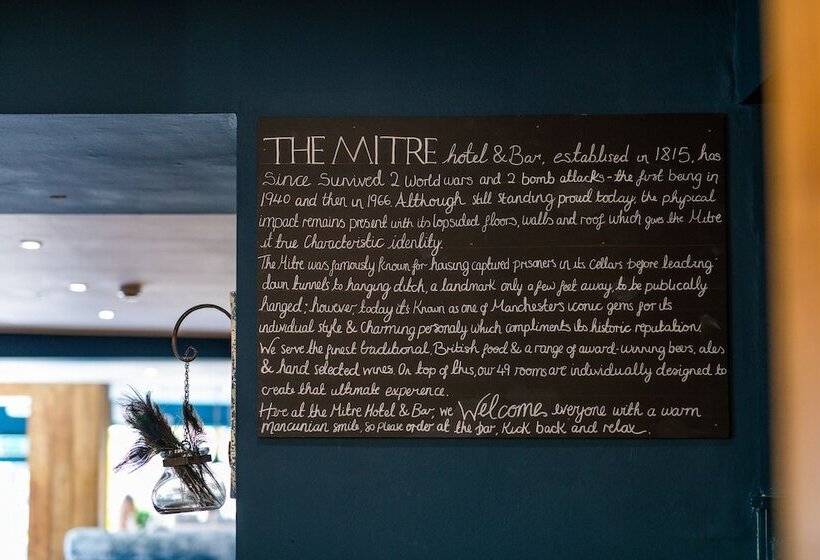 THE MITRE hotel & Bar, establised in 1815, has
Since Survived 2 World wars and 2 bomb attacks - the first being in
1940 and then in 1966. Although still standing proud today, the physical
impact remains present with its lopsided floors, walls and roof which gives the Mitre
it true Characteristic identity.
The Mitre was famously known for hausing captured prisoners in its Cellars before leading
down tunnels to hanging ditch, a landmark only a few feet away, to be publically
hanged; however, today it's Known as one of Manchesters iconic gems for its
individual style & Charming personaly which compliments its historic reputation!
We serve the finest traditional, British food & a range of award-winning beers, ales
& hand selected wines. On top of this, our 49 rooms are individually designed to
create that ultimate experience.
Here at the Mitre Hotel & Bar, we Welcomes everyone with a warm
mancunian smile, so please order at the bar, Kick back and relax.